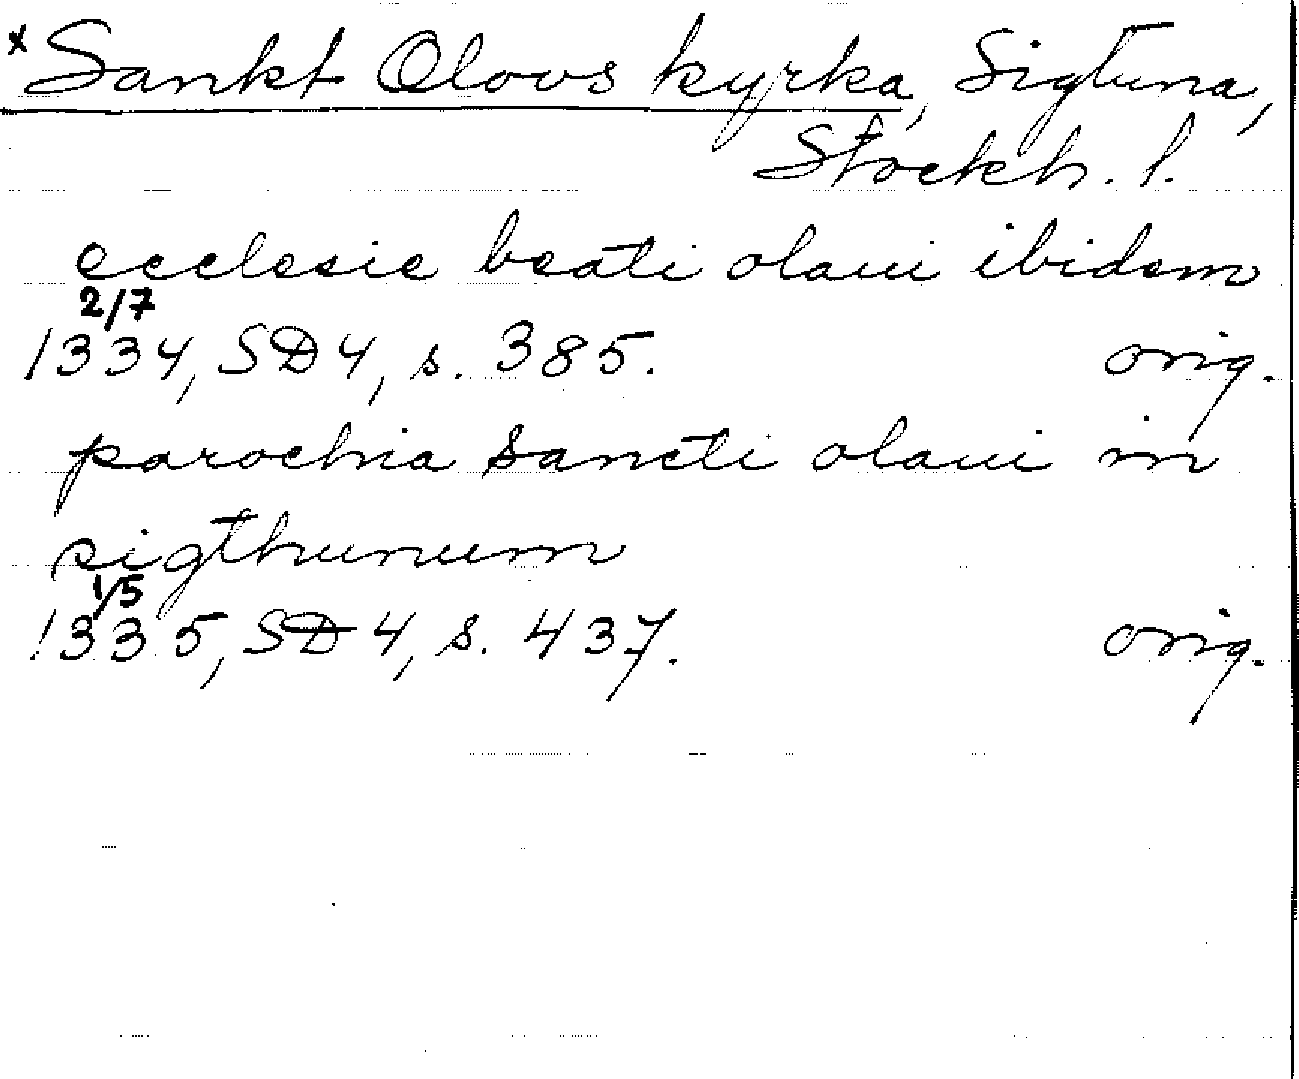 x Sankt Olovs kyrka, Sigtuna,
Stockh. l.
ecclesie beati olaui ibidem
2/7
1334, SD 4, s. 385. orig.
parochia sancti olaui in
sigthunum
1/5
1335, SD 4, s. 437. orig.